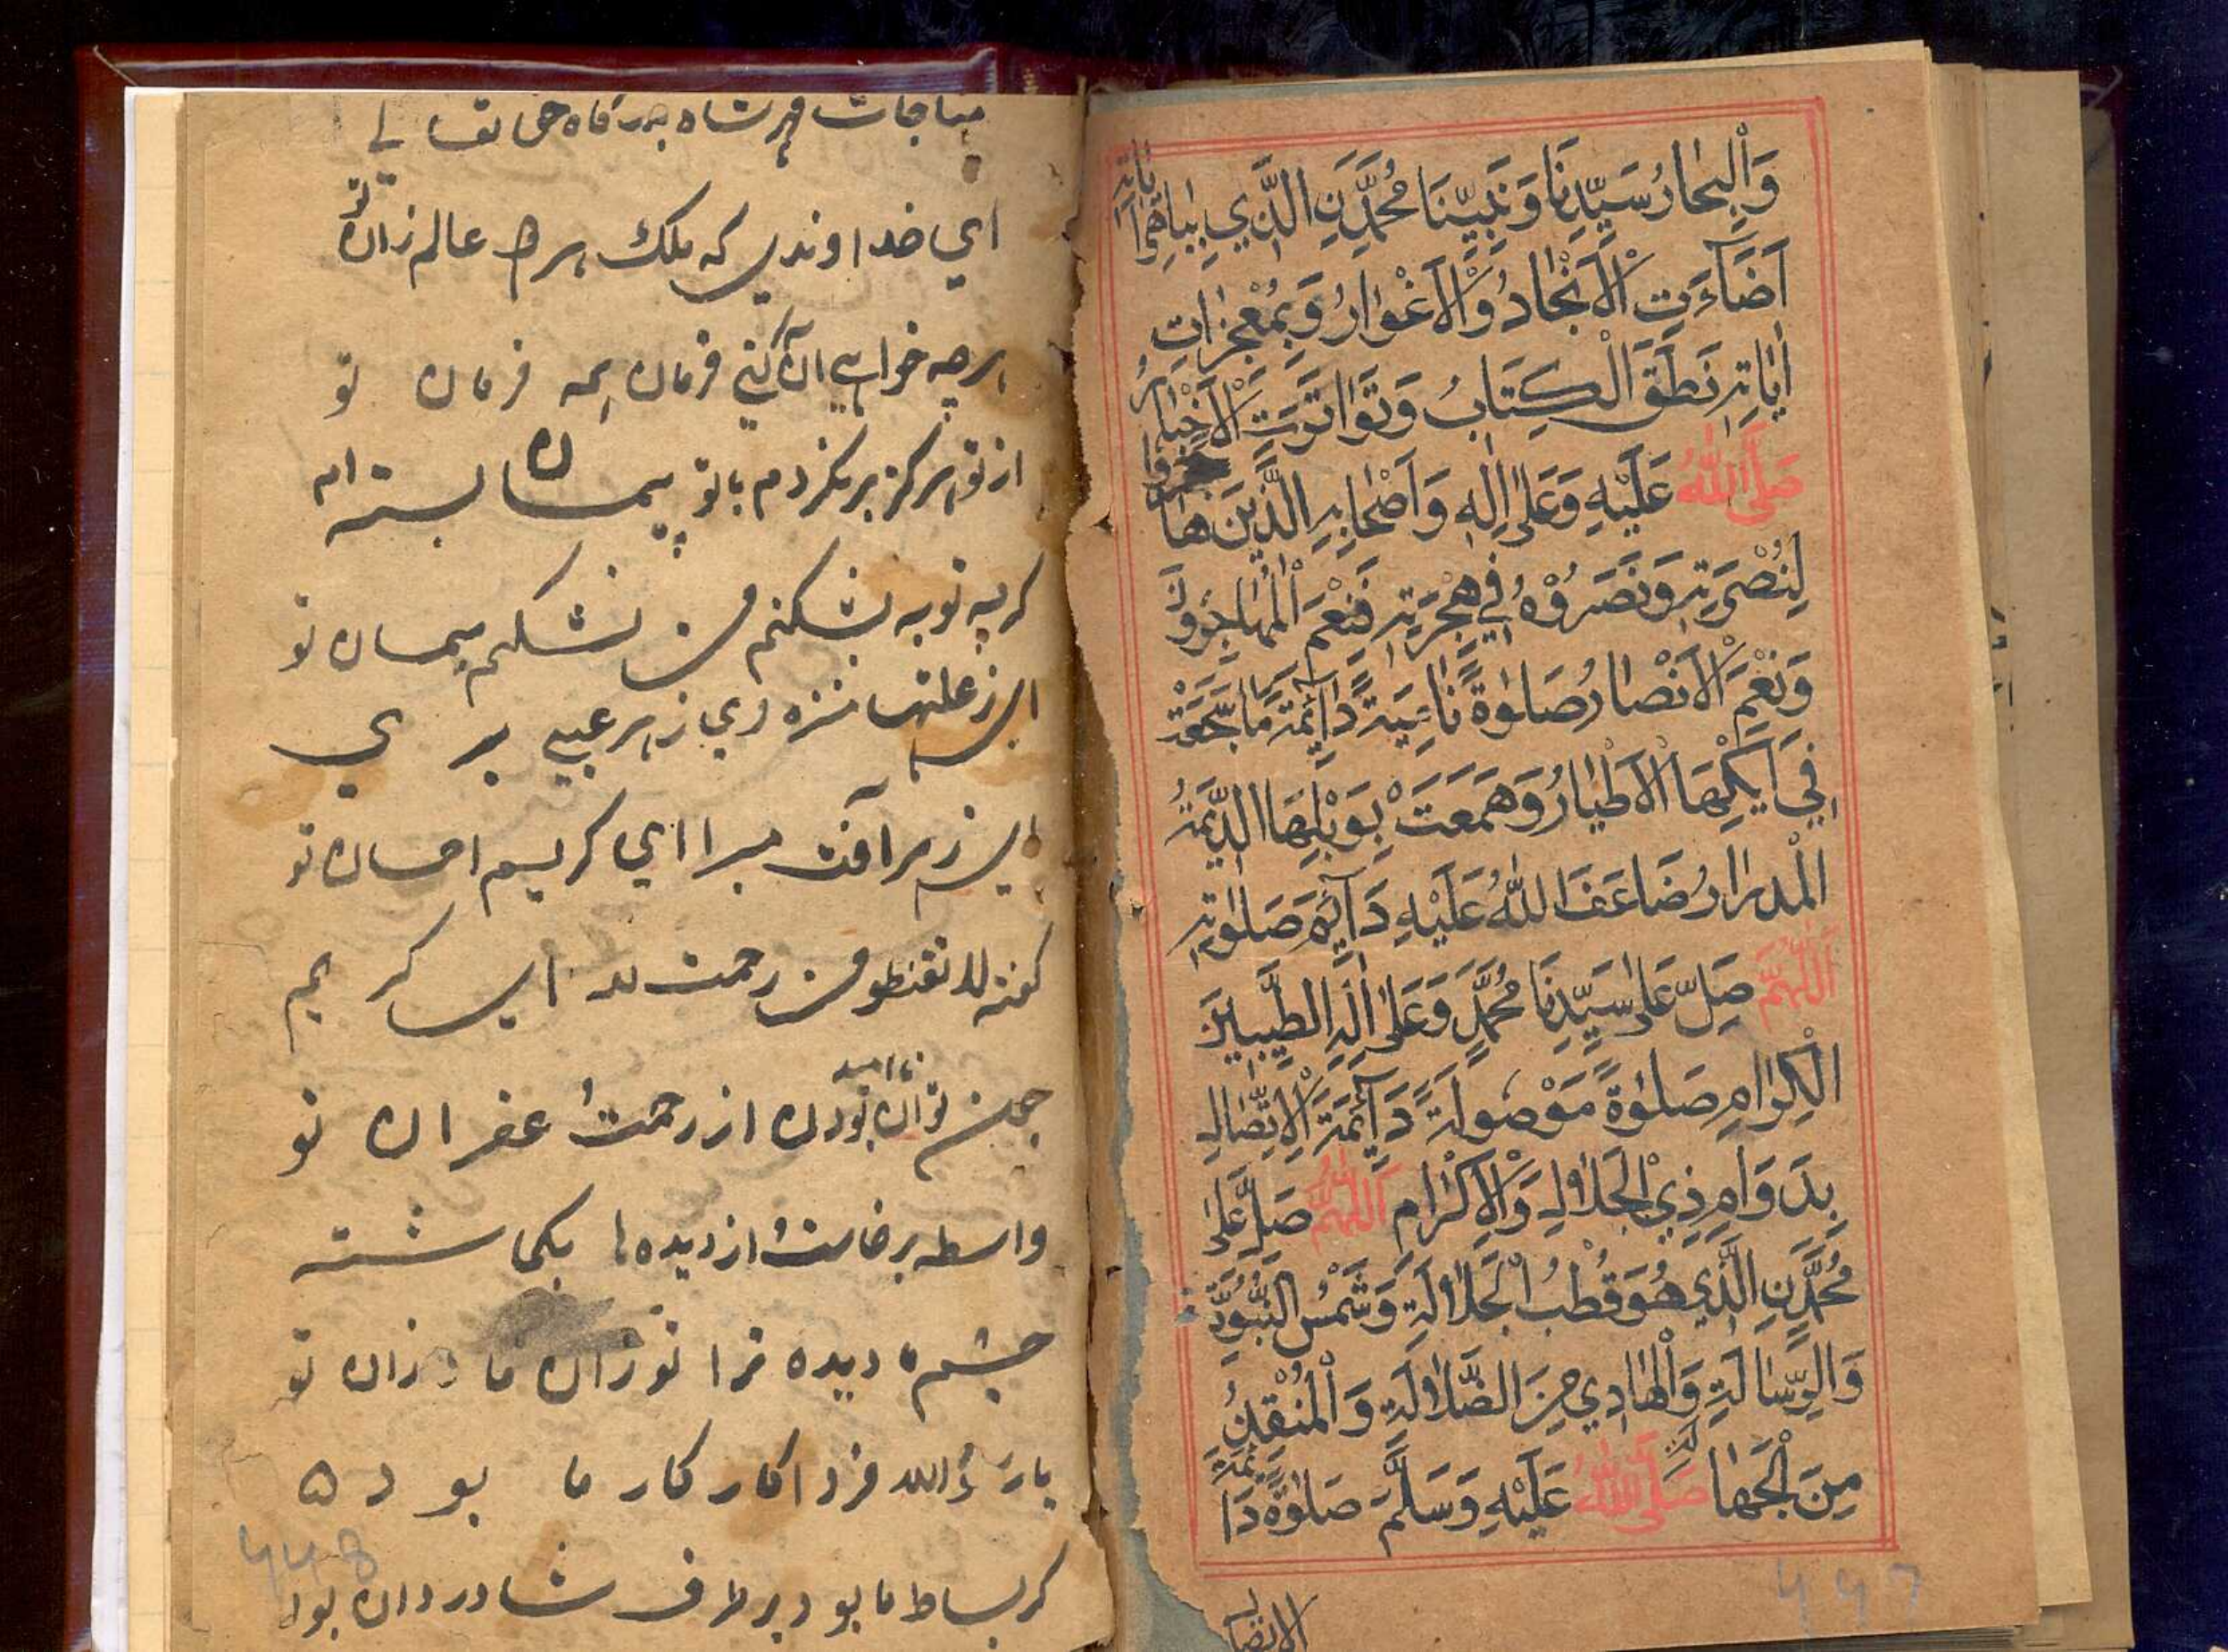 وَالْبِحَارُ سَيِّدِنَا وَنَبِيِّنَا مُحَمَّدٍنِ الَّذِي بِبَاهِرِ اٰيَاتِهٖ
اَضَآءَتِ الْاَنْجَادُ وَالْاَغْوَارُ وَبِمُعْجِزَاتِ
اٰيَاتِهٖ نَطَقَ الْكِتَابُ وَتَوَاتَرَتِ الْاَخْبَارُ
صَلَّى اللّٰهُ عَلَيْهِ وَعَلٰى اٰلِهٖ وَاَصْحَابِهِ الَّذِيْنَ هَاجَرُوا
لِنُصْرَتِهٖ وَنَصَرُوْهُ فِي هِجْرَتِهٖ فَنِعْمَ الْمُهَاجِرُوْنَ
وَنِعْمَ الْاَنْصَارُ صَلٰوةً نَامِيَةً دَآئِمَةً مَا سَجَعَتْ
فِي اَيْكِهَا الْاَطْيَارُ وَهَمَعَتْ بِوَبْلِهَا الدِّيْمَةُ
الْمِدْرَارُ ضَاعَفَ اللّٰهُ عَلَيْهِ دَآئِمَ صَلٰوتِهٖ
اَللّٰهُمَّ صَلِّ عَلٰى سَيِّدِنَا مُحَمَّدٍ وَعَلٰى اٰلِهِ الطَّيِّبِيْنَ
الْكِرَامِ صَلٰوةً مَوْصُولَةً دَآئِمَةَ الْاِتِّصَالِ
بِدَوَامِ ذِي الْجَلَالِ وَالْاِكْرَامِ اَللّٰهُمَّ صَلِّ عَلٰى
مُحَمَّدٍنِ الَّذِي هُوَ قُطْبُ الْجَلَالَةِ وَشَمْسُ النُّبُوَّةِ
وَالرِّسَالَةِ وَالْهَادِي مِنَ الضَّلَالَةِ وَالْمُنْقِذُ
مِنَ الْجَهَالَةِ صَلَّى اللّٰهُ عَلَيْهِ وَسَلَّمَ صَلٰوةً دَائِمَةَ
الاتصال
مناجات بدرگاه حق تعالی
اي خداوندي كه ملك هر عالم زان تو
هرچه خواهي آن كني فرمان همه فرمان تو
از تو هركز برنكردم با تو پیمان بسته ام
كر چه توبه بشكنم من نشكنم پیمان تو
اي ز علتها منزه وي ز هر عیبي بري
اي ز هر آفت مبرا اي كريم احسان تو
كفته لا تقنطو من رحمت الله اي كريم
چون توان بودن نااميد از رحمت غفران تو
واسطه برخاست از ديده ها
چشم ديده ترا تو زان ما و زان تو
فردا كار كار ما بود
كر بساط ما بود بر طرف بود